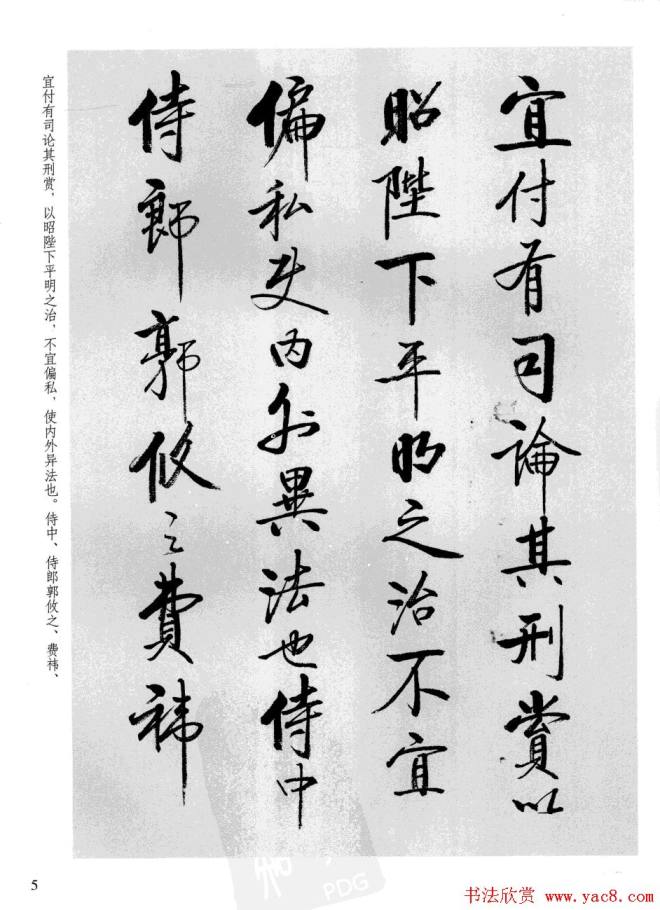 宜付有司論其刑賞以
昭陛下平明之治不宜
偏私使内外異法也侍中
侍郎郭攸之費禕
宜付有司论其刑赏，以昭陛下平明之治，不宜偏私，使内外异法也。侍中、侍郎郭攸之、费祎、
5
PDG
书法欣赏 www.yac8.com